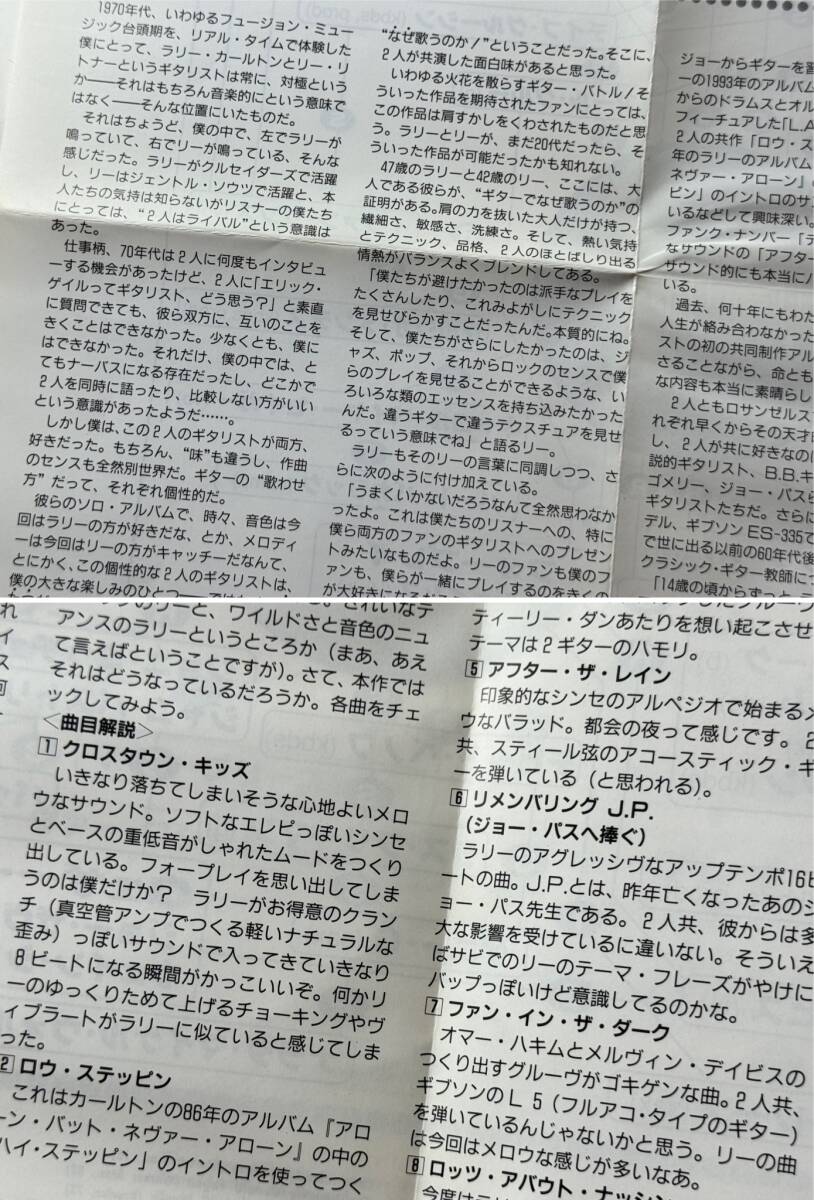 1970年代、いわゆるフュージョン・ミュー
ジック台頭期を、リアル・タイムで体験した
僕にとって、ラリー・カールトンとリー・リ
トナーというギタリストは常に、対極という
か――それはもちろん音楽的にという意味で
はなく――そんな位置にいたものだ。
それはちょうど、僕の中で、左でラリーが
鳴っていて、右でリーが鳴っている、そんな
感じだった。ラリーがクルセイダーズで活躍
し、リーはジェントル・ソウツで活躍と、本
人たちの気持は知らないがリスナーの僕たち
にとっては、“2人はライバル”という意識は
あった。
仕事柄、70年代は2人に何度もインタビュ
ーする機会があったけど、2人に「エリック・
ゲイルってギタリスト、どう思う？」と素直
に質問できても、彼ら双方に、互いのことを
きくことはできなかった。少なくとも、僕に
はできなかった。それだけ、僕の中では、と
てもナーバスになる存在だったし、どこかで
2人を同時に語ったり、比較しない方がいい
という意識があったようだ……。
しかし僕は、この2人のギタリストが両方、
好きだった。もちろん、“味”も違うし、作曲
のセンスも全然別世界だ。ギターの“歌わせ
方”だって、それぞれ個性的だ。
彼らのソロ・アルバムで、時々、音色は今
回はラリーの方が好きだな、とか、メロディ
ーは今回はリーの方がキャッチーだなんて、
とにかく、この個性的な2人のギタリストは、
僕の大きな楽しみのひとつ――
“なぜ歌うのか！”ということだった。そこに、
2人が共演した面白味があると思った。
いわゆる火花を散らすギター・バトル！そ
ういった作品を期待されたファンにとっては、
この作品は肩すかしをくわされたものだと思
う。ラリーとリーが、まだ20代だったら、そ
ういった作品が可能だったかも知れない。
47歳のラリーと42歳のリー、ここには、大
人である彼らが、“ギターでなぜ歌うのか”の
証明がある。肩の力を抜いた大人だけが持つ、
繊細さ、敏感さ、洗練さ。そして、熱い気持
とテクニック、品格、2人のほとばしり出る
情熱がバランスよくブレンドしてある。
「僕たちが避けたかったのは派手なプレイを
たくさんしたり、これみよがしにテクニック
を見せびらかすことだったんだ。本質的にね。
そして、僕たちがさらにしたかったのは、ジ
ャズ、ポップ、それからロックのセンスで僕
らのプレイを見せることができるような、い
ろいろな類のエッセンスを持ち込みたかった
んだ。違うギターで違うテクスチュアを見せ
るっていう意味でね」と語るリー。
ラリーもそのリーの言葉に同調しつつ、さ
らに次のように付け加えている。
「うまくいかないだろうなんて全然思わなか
ったよ。これは僕たちのリスナーへの、特に
僕ら両方のファンのギタリストへのプレゼン
トみたいなものだよ。リーのファンも僕のフ
ァンも、僕らが一緒にプレイするのをきくの
が大好きになるだ
ジョーからギターを習
ーの1993年のアルバム
からのドラムスとオル
フィーチュアした「L.A
2人の共作「ロウ・ス
年のラリーのアルバム
ネヴァー・アローン』の
ピン」のイントロのサ
いるなどして興味深い。
ファンク・ナンバー「テ
なサウンドの「アフター
サウンド的にも本当にバ
いる。
過去、何十年にもわた
人生が絡み合わなかった
ストの初の共同制作アル
さることながら、命とも
な内容も本当に素晴らし
2人ともロサンゼルス
れぞれ早くからその天才
し、2人が共に好きなの
説的ギタリスト、B.B.キ
ゴメリー、ジョー・パス
ギタリストたちだ。さらに
デル、ギブソンES-335で
で世に出る以前の60年代後
クラシック・ギター教師につ
「14歳の頃からずっと、
のリーと、ワイルドさと音色のニュ
アンスのラリーというところか（まあ、あえ
て言えばということですが）。さて、本作では
それはどうなっているだろうか。各曲をチェ
ックしてみよう。
<曲目解説>
1 クロスタウン・キッズ
いきなり落ちてしまいそうな心地よいメロ
ウなサウンド。ソフトなエレピっぽいシンセ
とベースの重低音がしゃれたムードをつくり
出している。フォープレイを思い出してしま
うのは僕だけか？ ラリーがお得意のクラン
チ（真空管アンプでつくる軽いナチュラルな
歪み）っぽいサウンドで入ってきていきなり
8ビートになる瞬間がかっこいいぞ。何かリ
ーのゆっくりためて上げるチョーキングやヴ
ィブラートがラリーに似ていると感じてしま
った。
2 ロウ・ステッピン
これはカールトンの86年のアルバム『アロ
ーン・バット・ネヴァー・アローン』の中の
ハイ・ステッピン」のイントロを使ってつく
ティーリー・ダンあたりを想い起こさせ
テーマは2ギターのハモリ。
5 アフター・ザ・レイン
印象的なシンセのアルペジオで始まるメ
ウなバラッド。都会の夜って感じです。2
共、スティール弦のアコースティック・ギ
ーを弾いている（と思われる）。
6 リメンバリング J.P.
（ジョー・パスへ捧ぐ）
ラリーのアグレッシヴなアップテンポ16ビ
ートの曲。J.P.とは、昨年亡くなったあのジ
ョー・パス先生である。2人共、彼からは多
大な影響を受けているに違いない。そういえ
ばサビでのリーのテーマ・フレーズがやけに
バップっぽいけど意識してるのかな。
7 ファン・イン・ザ・ダーク
オマー・ハキムとメルヴィン・デイビスの
つくり出すグルーヴがゴキゲンな曲。2人共、
ギブソンのL5（フルアコ・タイプのギター）
を弾いているんじゃないかと思う。リーの曲
は今回はメロウな感じが多いなあ。
8 ロッツ・アバウト・ナッシン